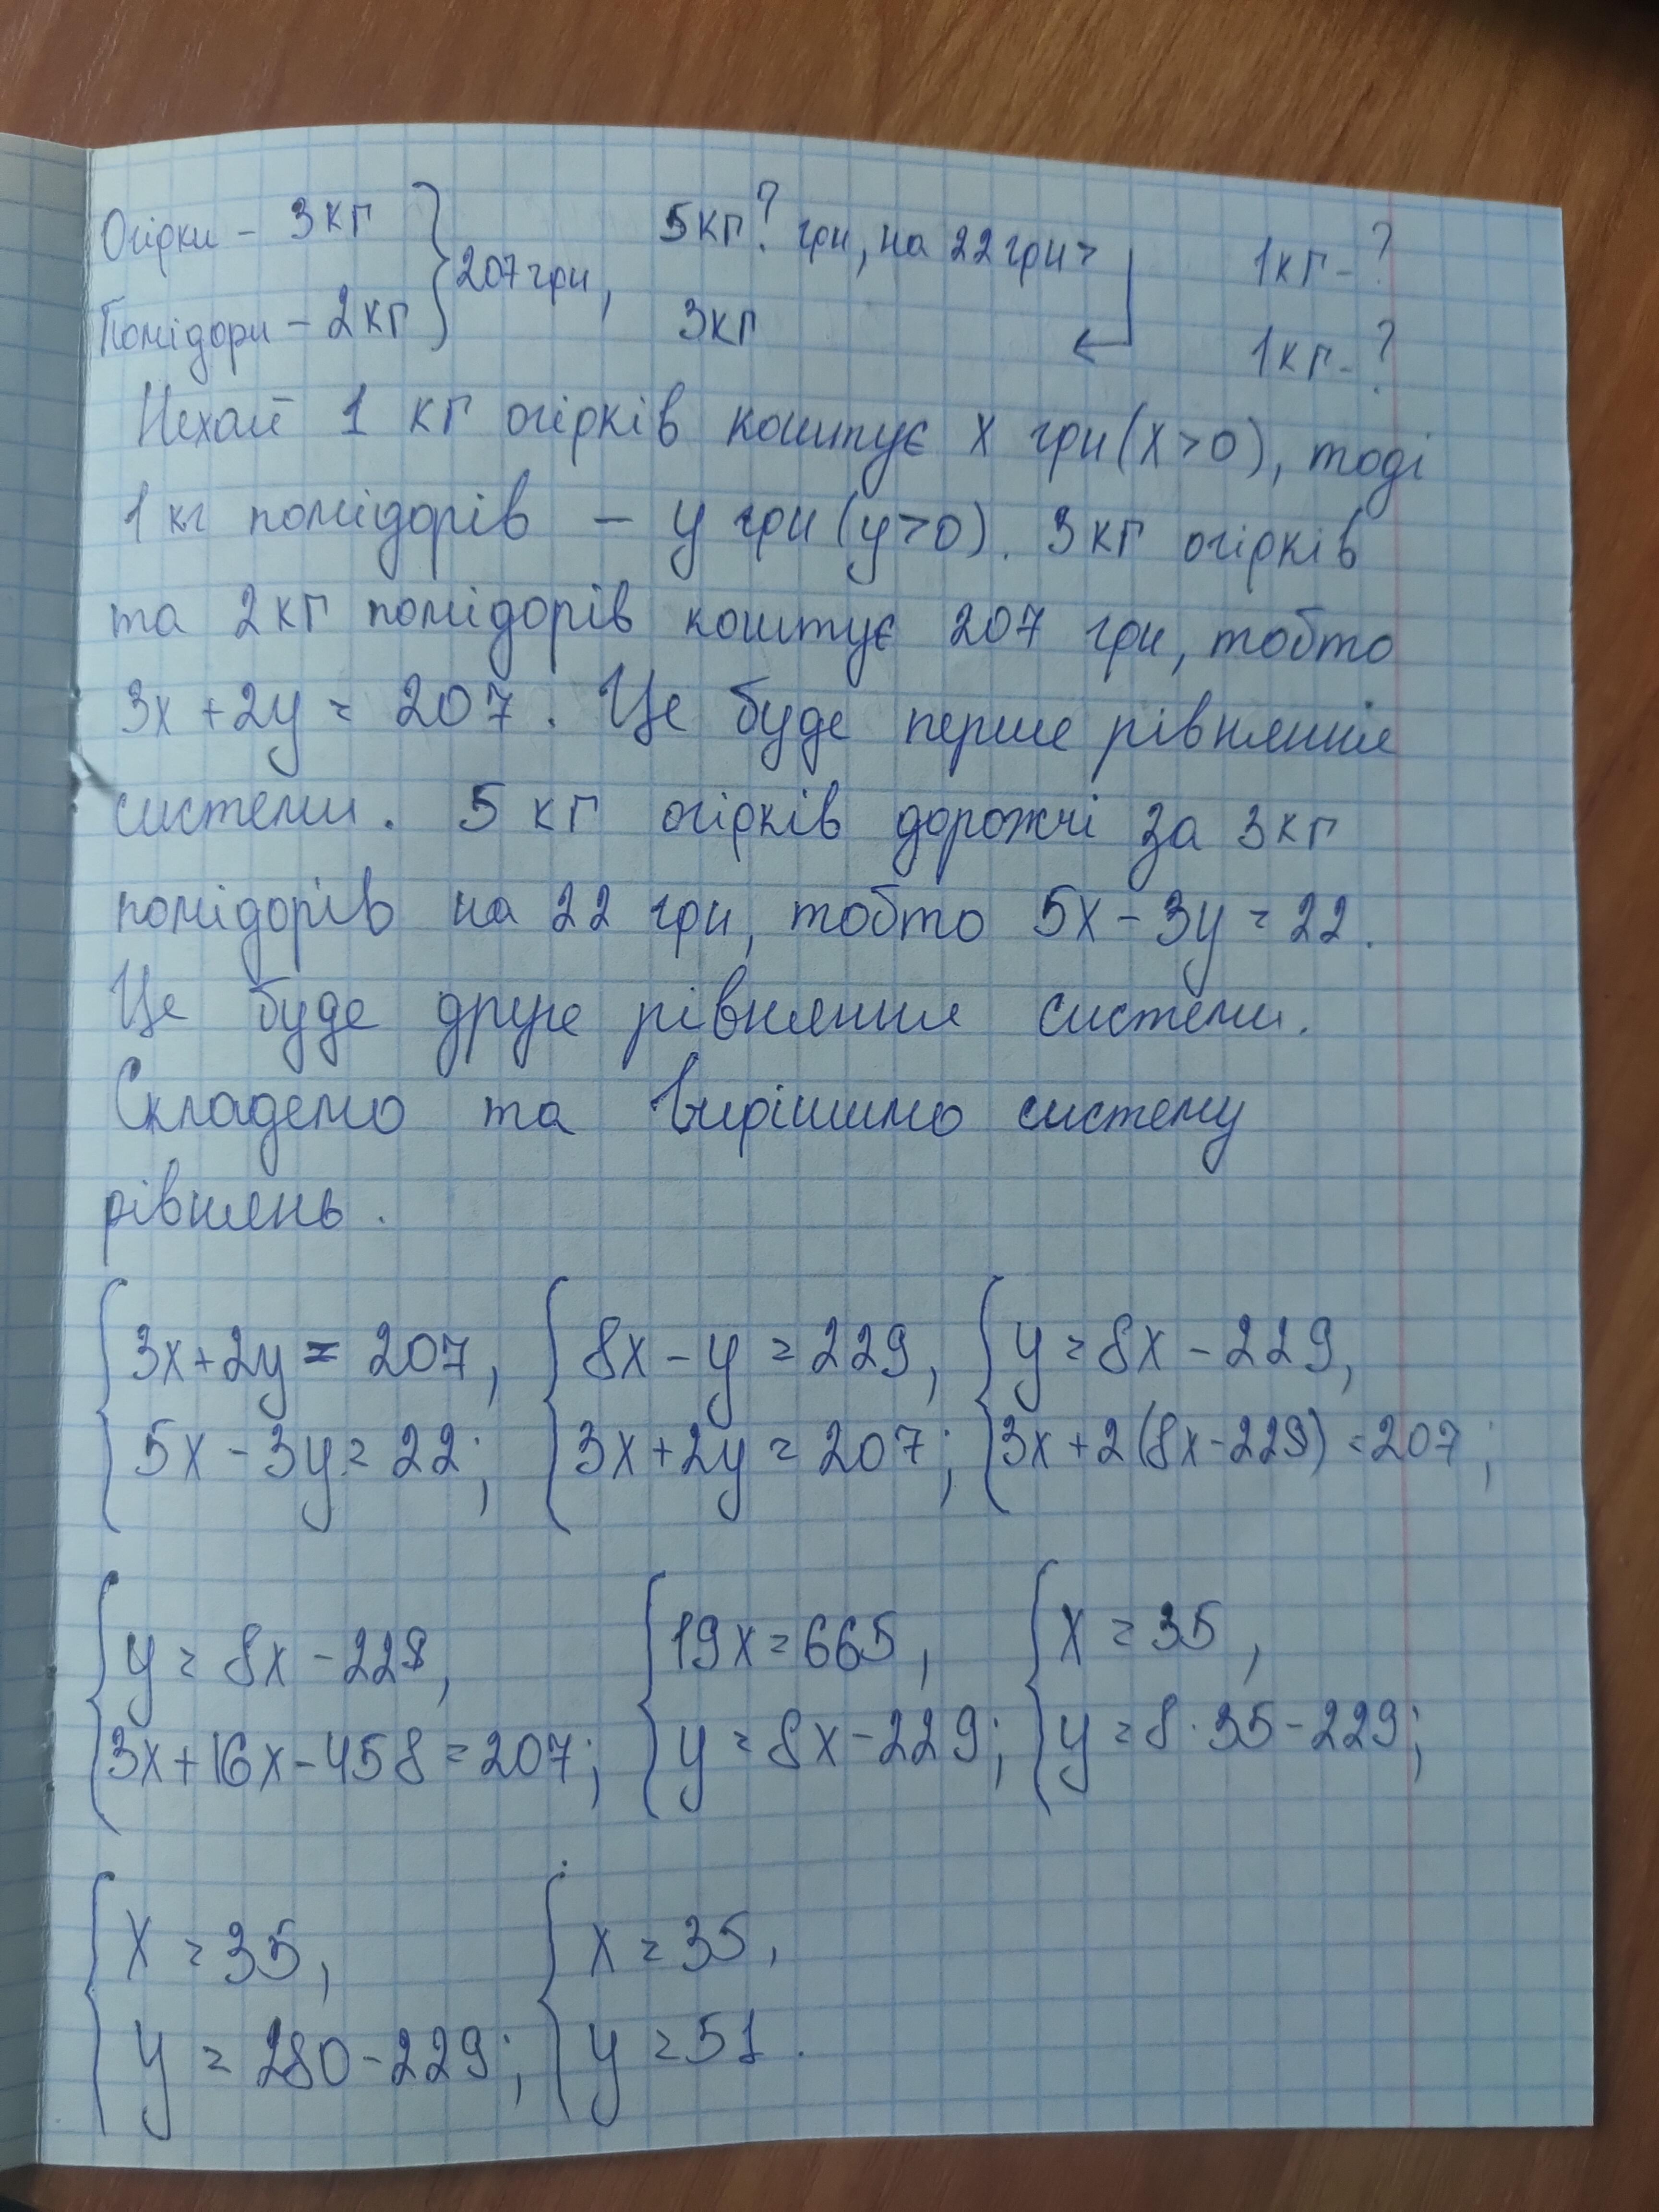 Огірки - 3кг } 207 грн, 5кг ? грн, на 22 грн > 1кг - ?
Помідори - 2кг 3кг 1кг - ?
Нехай 1 кг огірків коштує x грн (x>0), тоді
1 кг помідорів - y грн (y>0). 3кг огірків
та 2кг помідорів коштує 207 грн, тобто
3x + 2y = 207. Це буде перше рівняння
системи. 5 кг огірків дорожчі за 3кг
помідорів на 22 грн, тобто 5x - 3y = 22.
Це буде друге рівняння системи.
Складемо та вирішимо систему
рівнянь.
{ 3x + 2y = 207, { 8x - y = 229, { y = 8x - 229,
5x - 3y = 22; 3x + 2y = 207; 3x + 2(8x - 229) = 207;
{ y = 8x - 229, { 19x = 665, { x = 35,
3x + 16x - 458 = 207; y = 8x - 229; y = 8 · 35 - 229;
{ x = 35, { x = 35,
y = 280 - 229; y = 51.